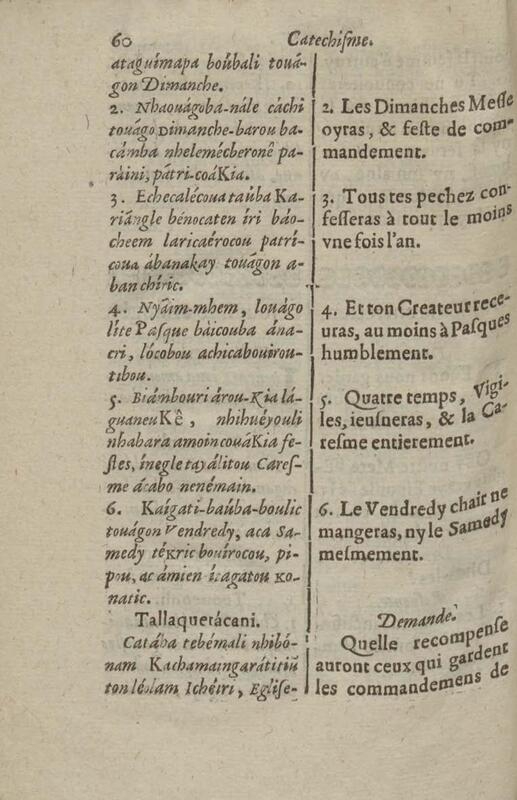 60 Catechiſme.
ataguímapa boúbali touá-
gon Dimanche.
2. Nhaouágoba-nále cáchi
touágo Dimanche-barou ba-
cámba nhelemécberonê pa-
ráini, pátri-coáKia.
3. Echecalécoua taúba Ka-
riángle bénocaten íri báo-
cheem laricaérocou patrí-
coua ábanakay touágon a-
ban chíric.
4. Nyáim-mhem, louágo
líte Paſque báicouba ána-
cri, lócobou achicabouirou-
tibou.
5. Biámbouri árou-Kia lá-
guaneuKê, nhihuéyouli
nhabara amoin couáKia fe-
ſtes, ínegle tayálitou Careſ-
me ácabo nenémain.
6. Kaígati-baúba-boulic
touágon Vendredy, aca Sa-
medy téKric bouírocou, pi-
pou, ac ámien ízagatou Ko-
natic.
Tallaquetácani.
Catába tebémali nhibó-
nam Kachamaingarátitiū
ton léslam Ichéiri, Egliſe-
2. Les Dimanches Meſſe
oyras, & feſte de com-
mandement.
3. Tous tes pechez con-
feſſeras à tout le moins
vne fois l'an.
4. Et ton Createur rece-
uras, au moins à Paſques
humblement.
5. Quatre temps, Vigi-
les, ieuſneras, & la Ca-
reſme entierement.
6. Le Vendredy chair ne
mangeras, ny le Samedy
meſmement.
Demande.
Quelle recompenſe
auront ceux qui gardent
les commandemens de